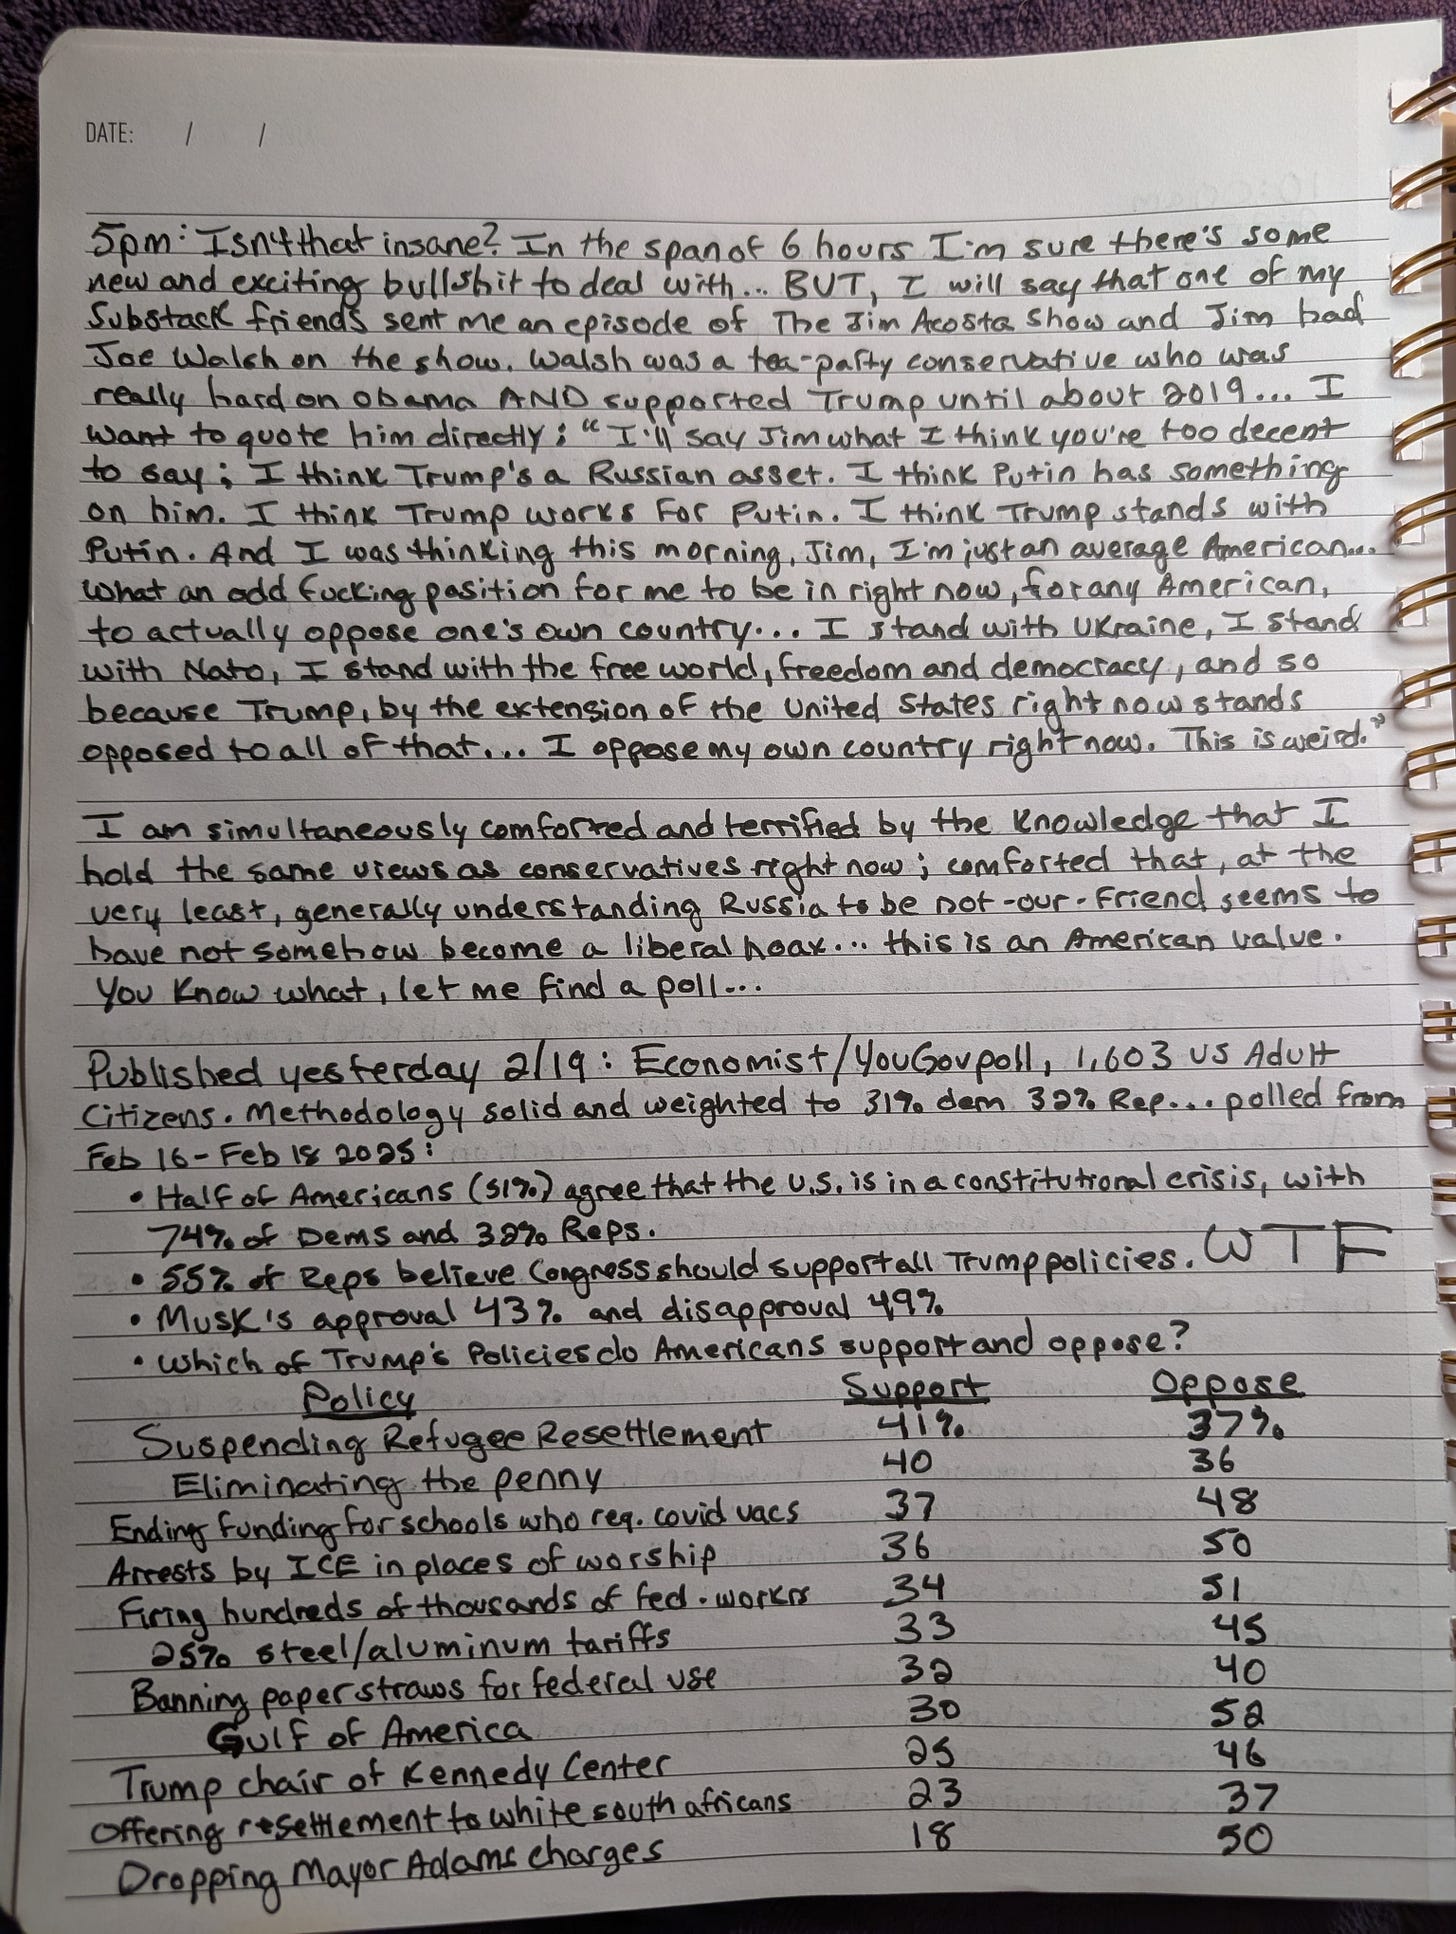 DATE: / /
5pm: Isn't that insane? In the span of 6 hours I'm sure there's some
new and exciting bullshit to deal with... BUT, I will say that one of my
Substack friends sent me an episode of The Jim Acosta Show and Jim had
Joe Walsh on the show. Walsh was a tea-party conservative who was
really hard on Obama AND supported Trump until about 2019... I
want to quote him directly: "I'll say Jim what I think you're too decent
to say; I think Trump's a Russian asset. I think Putin has something
on him. I think Trump works for Putin. I think Trump stands with
Putin. And I was thinking this morning, Jim, I'm just an average American...
what an odd fucking position for me to be in right now, for any American,
to actually oppose one's own country... I stand with Ukraine, I stand
with Nato, I stand with the free world, freedom and democracy, and so
because Trump, by the extension of the United States right now stands
opposed to all of that... I oppose my own country right now. This is weird."
I am simultaneously comforted and terrified by the knowledge that I
hold the same views as conservatives right now; comforted that, at the
very least, generally understanding Russia to be not-our-friend seems to
have not somehow become a liberal hoax... this is an American value.
You know what, let me find a poll...
Published yesterday 2/19: Economist/YouGov poll, 1,603 US Adult
Citizens. Methodology solid and weighted to 31% dem 32% Rep... polled from
Feb 16 - Feb 18 2025:
• Half of Americans (51%) agree that the U.S. is in a constitutional crisis, with
74% of Dems and 32% Reps.
• 55% of Reps believe Congress should support all Trump policies. WTF
• Musk's approval 43% and disapproval 49%
• Which of Trump's Policies do Americans support and oppose?
Policy Support Oppose
Suspending Refugee Resettlement 41% 37%
Eliminating the penny 40 36
Ending funding for schools who req. covid vacs 37 48
Arrests by ICE in places of worship 36 50
Firing hundreds of thousands of fed. workrs 34 51
25% steel/aluminum tariffs 33 45
Banning paper straws for federal use 32 40
Gulf of America 30 52
Trump chair of Kennedy Center 25 46
Offering resettlement to white south africans 23 37
Dropping Mayor Adams charges 18 50